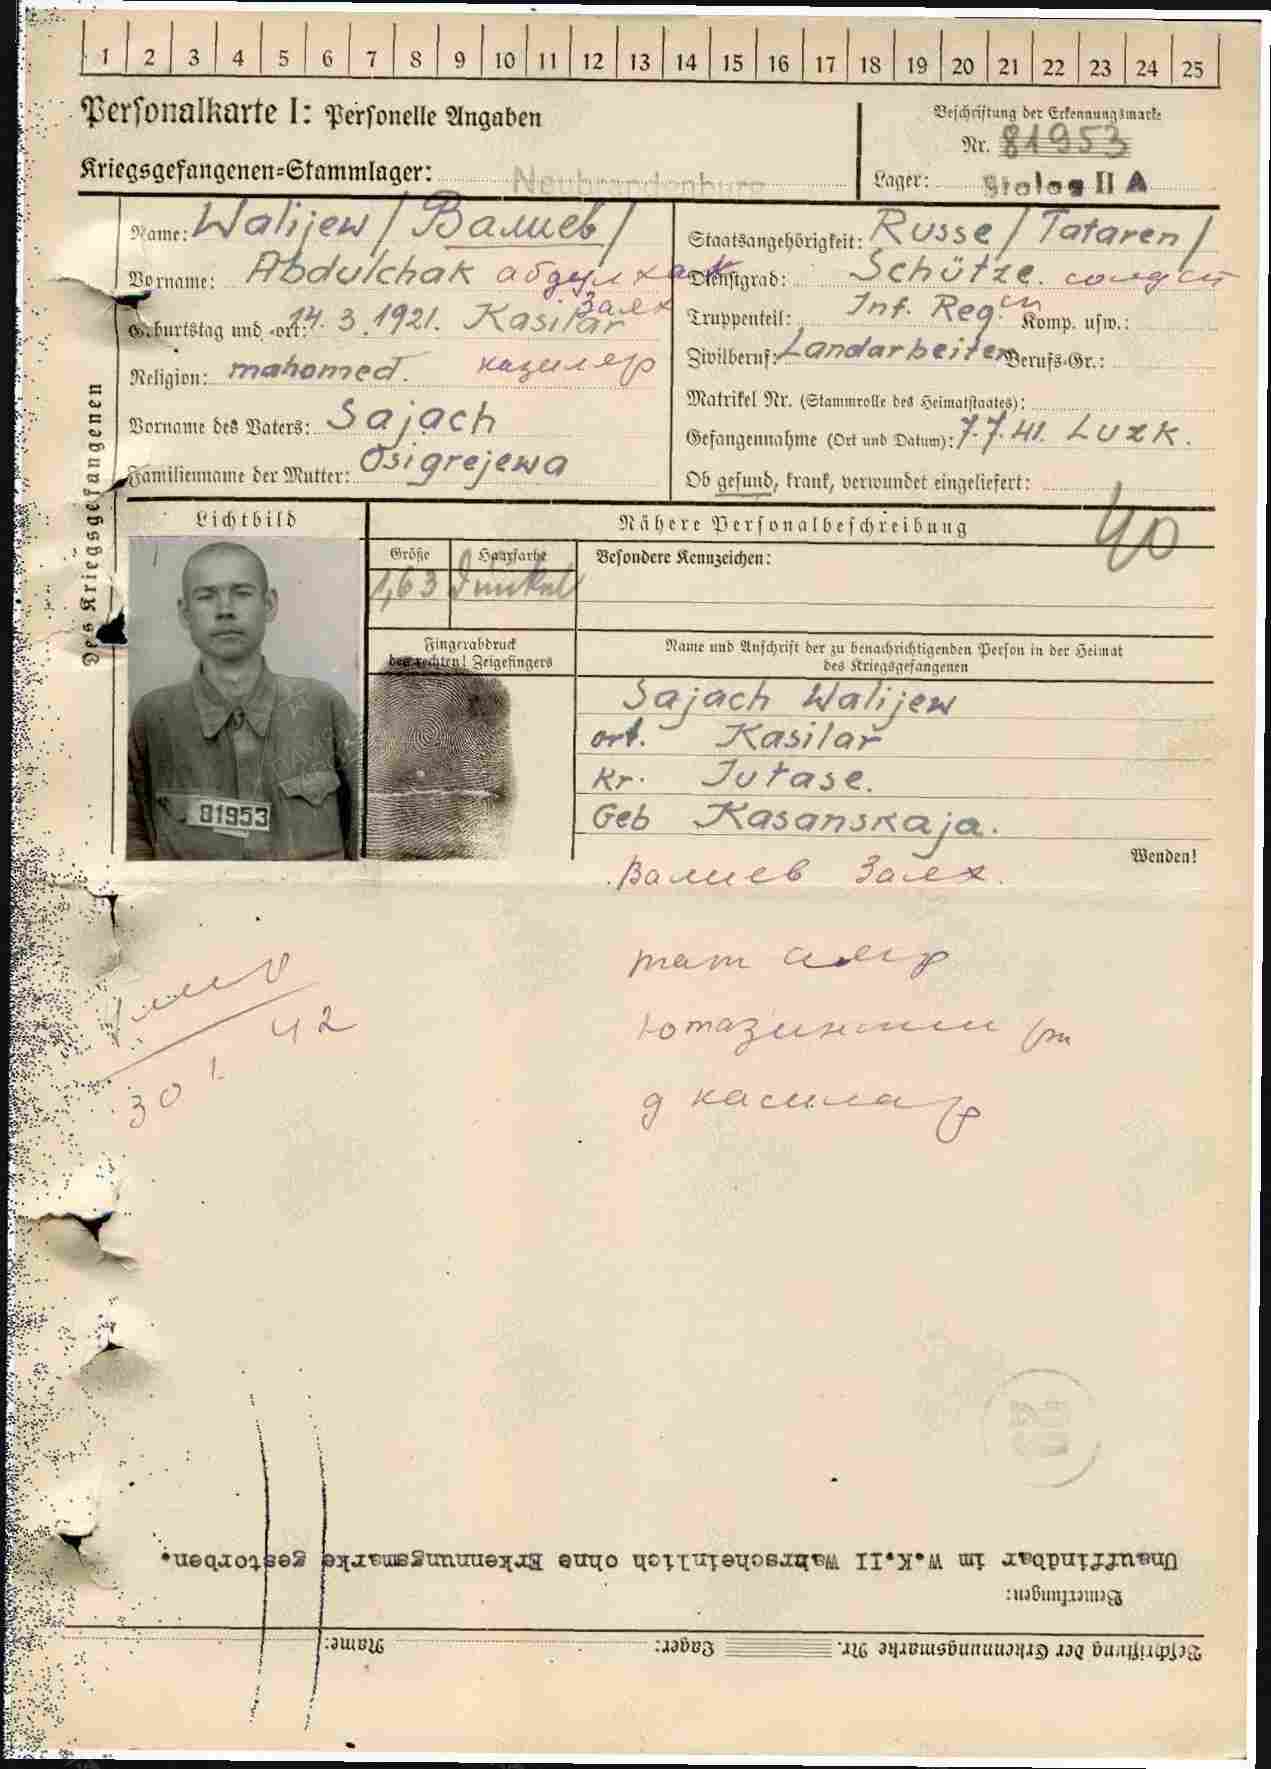 1 2 3 4 5 6 7 8 9 10 11 12 13 14 15 16 17 18 19 20 21 22 23 24 25
Personalkarte I: Personelle Angaben
Kriegsgefangenen-Stammlager: Neubrandenburg
Beschriftung der Erkennungsmarke
Nr. 81953
Lager: Stalag II A
Des Kriegsgefangenen
Name: Walijew / Валиев /
Vorname: Abdulchak абдулхак
Залх
Geburtstag und -ort: 14.3.1921. Kasilar
Religion: mahomed. казиляр
Vorname des Vaters: Sajach
Familienname der Mutter: Osigrejewa
Staatsangehörigkeit: Russe / Tataren /
Dienstgrad: Schütze. солдат
Truppenteil: Inf. Reg. Komp. usw.:
Zivilberuf: Landarbeiter Berufs-Gr.:
Matrikel Nr. (Stammrolle des Heimatstaates):
Gefangennahme (Ort und Datum): 7.7.41. Luzk.
Ob gesund, krank, verwundet eingeliefert:
40
Lichtbild
81953
Nähere Personalbeschreibung
Größe
1,63
Haarfarbe
Dunkel
Besondere Kennzeichen:
Fingerabdruck
des rechten! Zeigefingers
Name und Anschrift der zu benachrichtigenden Person in der Heimat
des Kriegsgefangenen
Sajach Walijew
ort. Kasilar
Kr. Jutase.
Geb Kasanskaja.
Wenden!
Валиев Залх.
тат
Ютазински
д касиляр
30 1. 42
Unauffindbar im W.K.II Wahrscheinlich ohne Erkennungsmarke gestorben.
Bemerkungen:
Beschriftung der Erkennungsmarke Nr. Lager: Name: